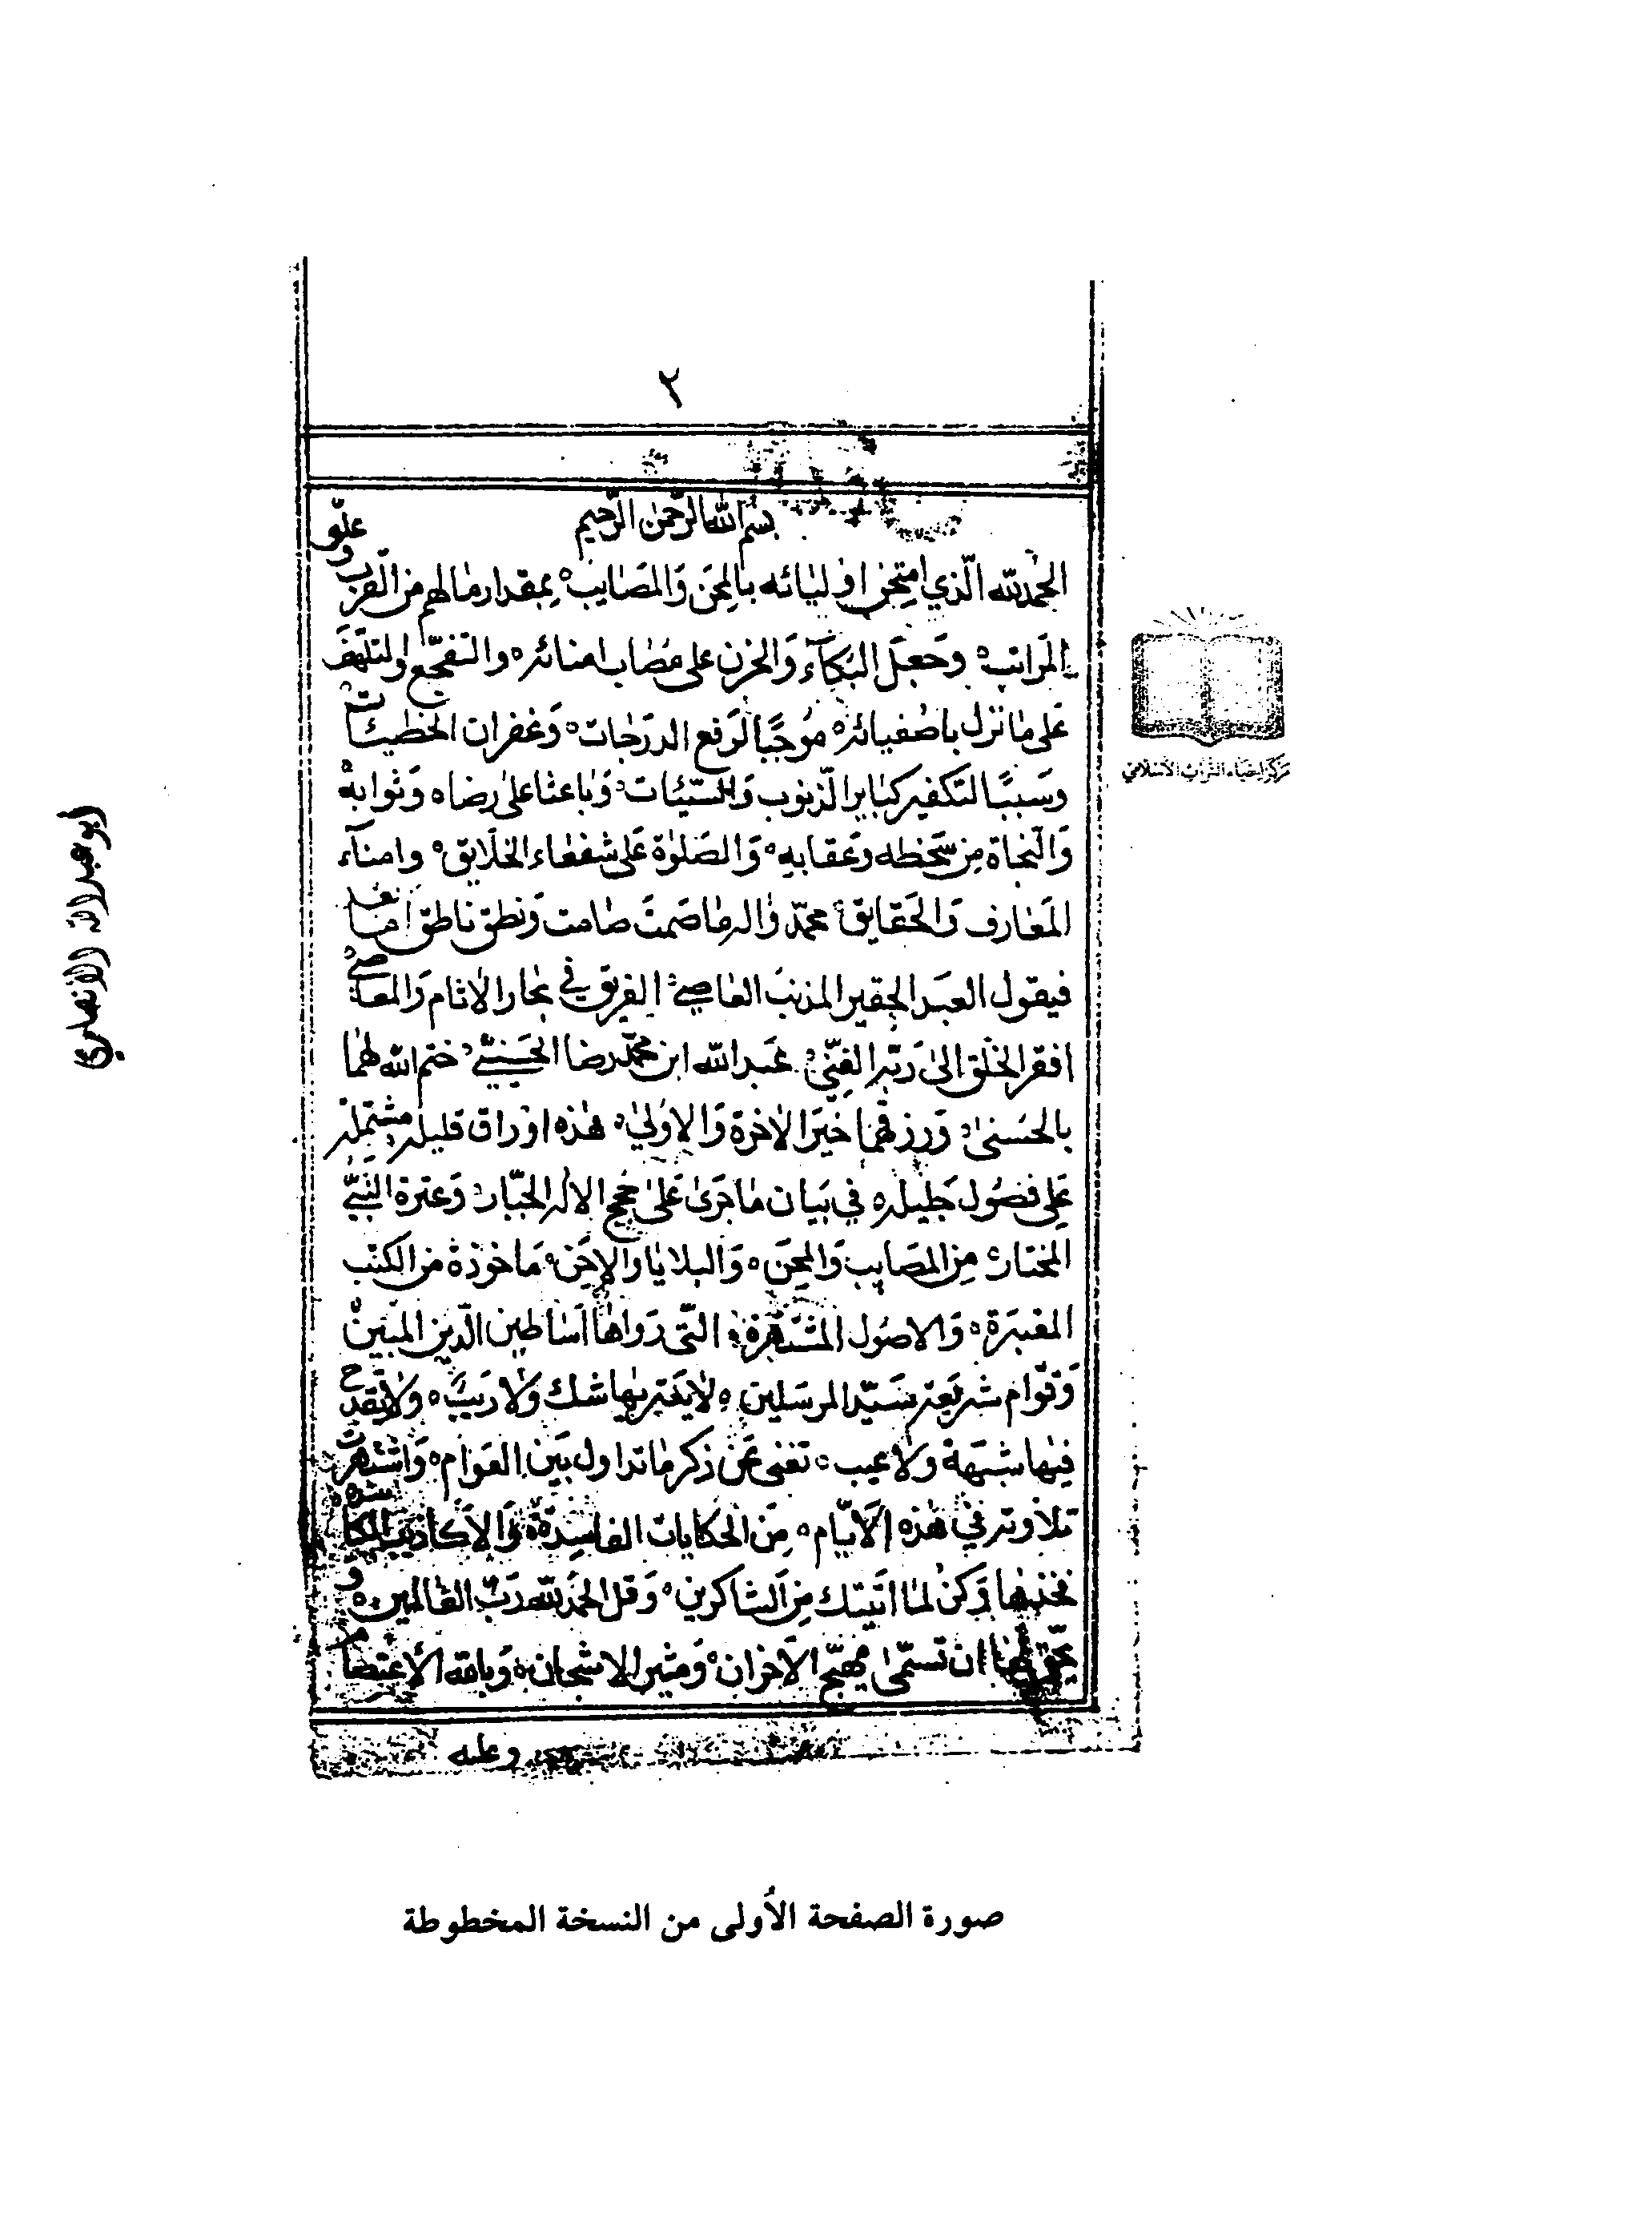 ٢
بسم الله الرحمن الرحيم
الحمد لله الّذي امتحن اوليائه بالمحن والمصايب بمقدار مالهم من القرب وعلوّ
المراتب وجعل البكآء والحزن على مصاب امنائه والتفجّع والتلهّف
على ما نزل باصفيائه موجبًا لرفع الدرجات وغفران الخطيئات
وسببًا لتكفير كباير الذنوب والسيّئات وباعثا على رضاه وثوابه
والنجاة من سخطه وعقابه والصلوة على شفعاء الخلايق وامنآء
المعارف والحقايق محمّد واله ما صمت صامت ونطق ناطق امّا بعد
فيقول العبد الحقير المذنب العاصي الغريق في بحار الاثام والمعاصي
افقر الخلق الى ربّه الغنيّ عبد الله ابن محمّد رضا الحسيني ختم الله لهما
بالحسنى ورزقهما خير الاخرة والاولى هذه اوراق قليله مشتمله
على فصول جليله في بيان ما جرى على حجج الاله الجبّار وعترة النبيّ
المختار من المصايب والمحن والبلايا والاحن ماخوذة من الكتب
المعتبرة والاصول المشتهرة التّي رواها اساطين الدين المبين
وقوّام شريعة سيّد المرسلين لا يعتريها شك ولا ريب ولا يقدح
فيها شبهة ولا عيب تغني عن ذكر ما تداول بين العوام واشتهرت
تلاوته في هذه الايّام من الحكايات الفاسدة والاكاذيب الكاسدة
فخذها وكن لما اتيتك من الشاكرين وقل الحمد لله ربّ العالمين و
ان تسمّى مهيّج الاحزان ومثير الاشجان وبالله الاعتصام
وعليه
صورة الصفحة الأُولى من النسخة المخطوطة
مركز احياء التراث الاسلامي
أبو عبدالله الأنصاري